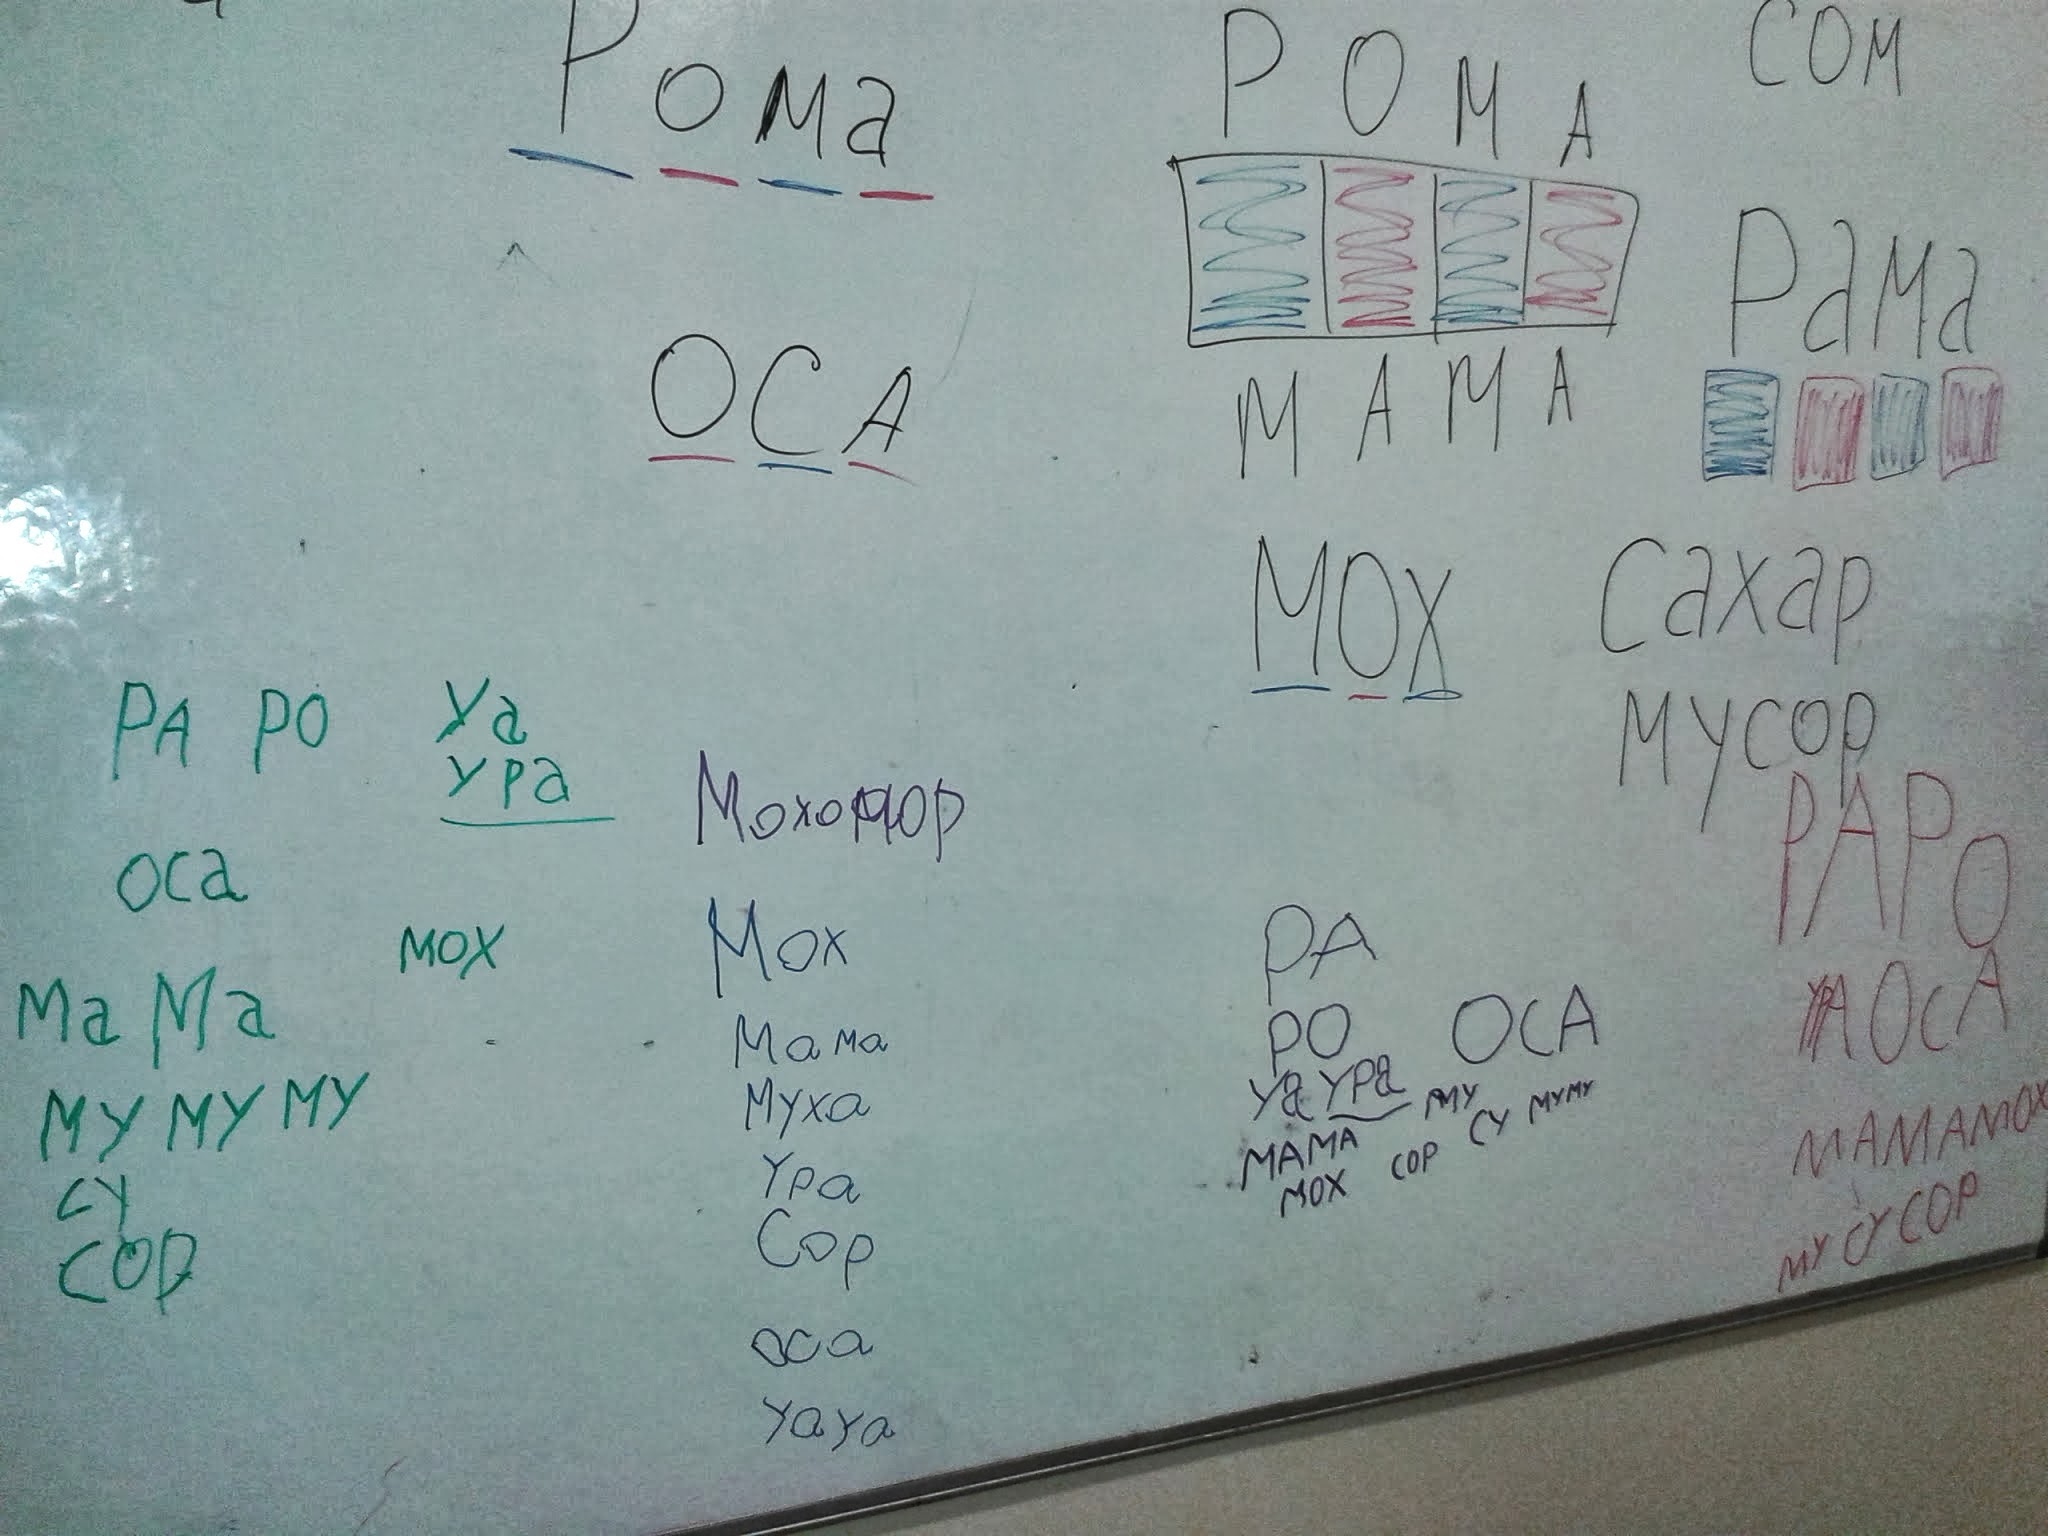 Рома
ОСА
РОМА
МАМА
МОХ
СОМ
Рама
Сахар
Мусор
РА РО Уа
ура
оса
мох
Ма Ма
МУ МУ МУ
СУ
СОР
Мох
Мама
Муха
Ура
Сор
оса
уауа
РА
РО ОСА
Уа ура МУ СУ МУМУ
МАМА СОР
МОХ
РАРО
ОСА
МАМАМОХ
МУСУСОР